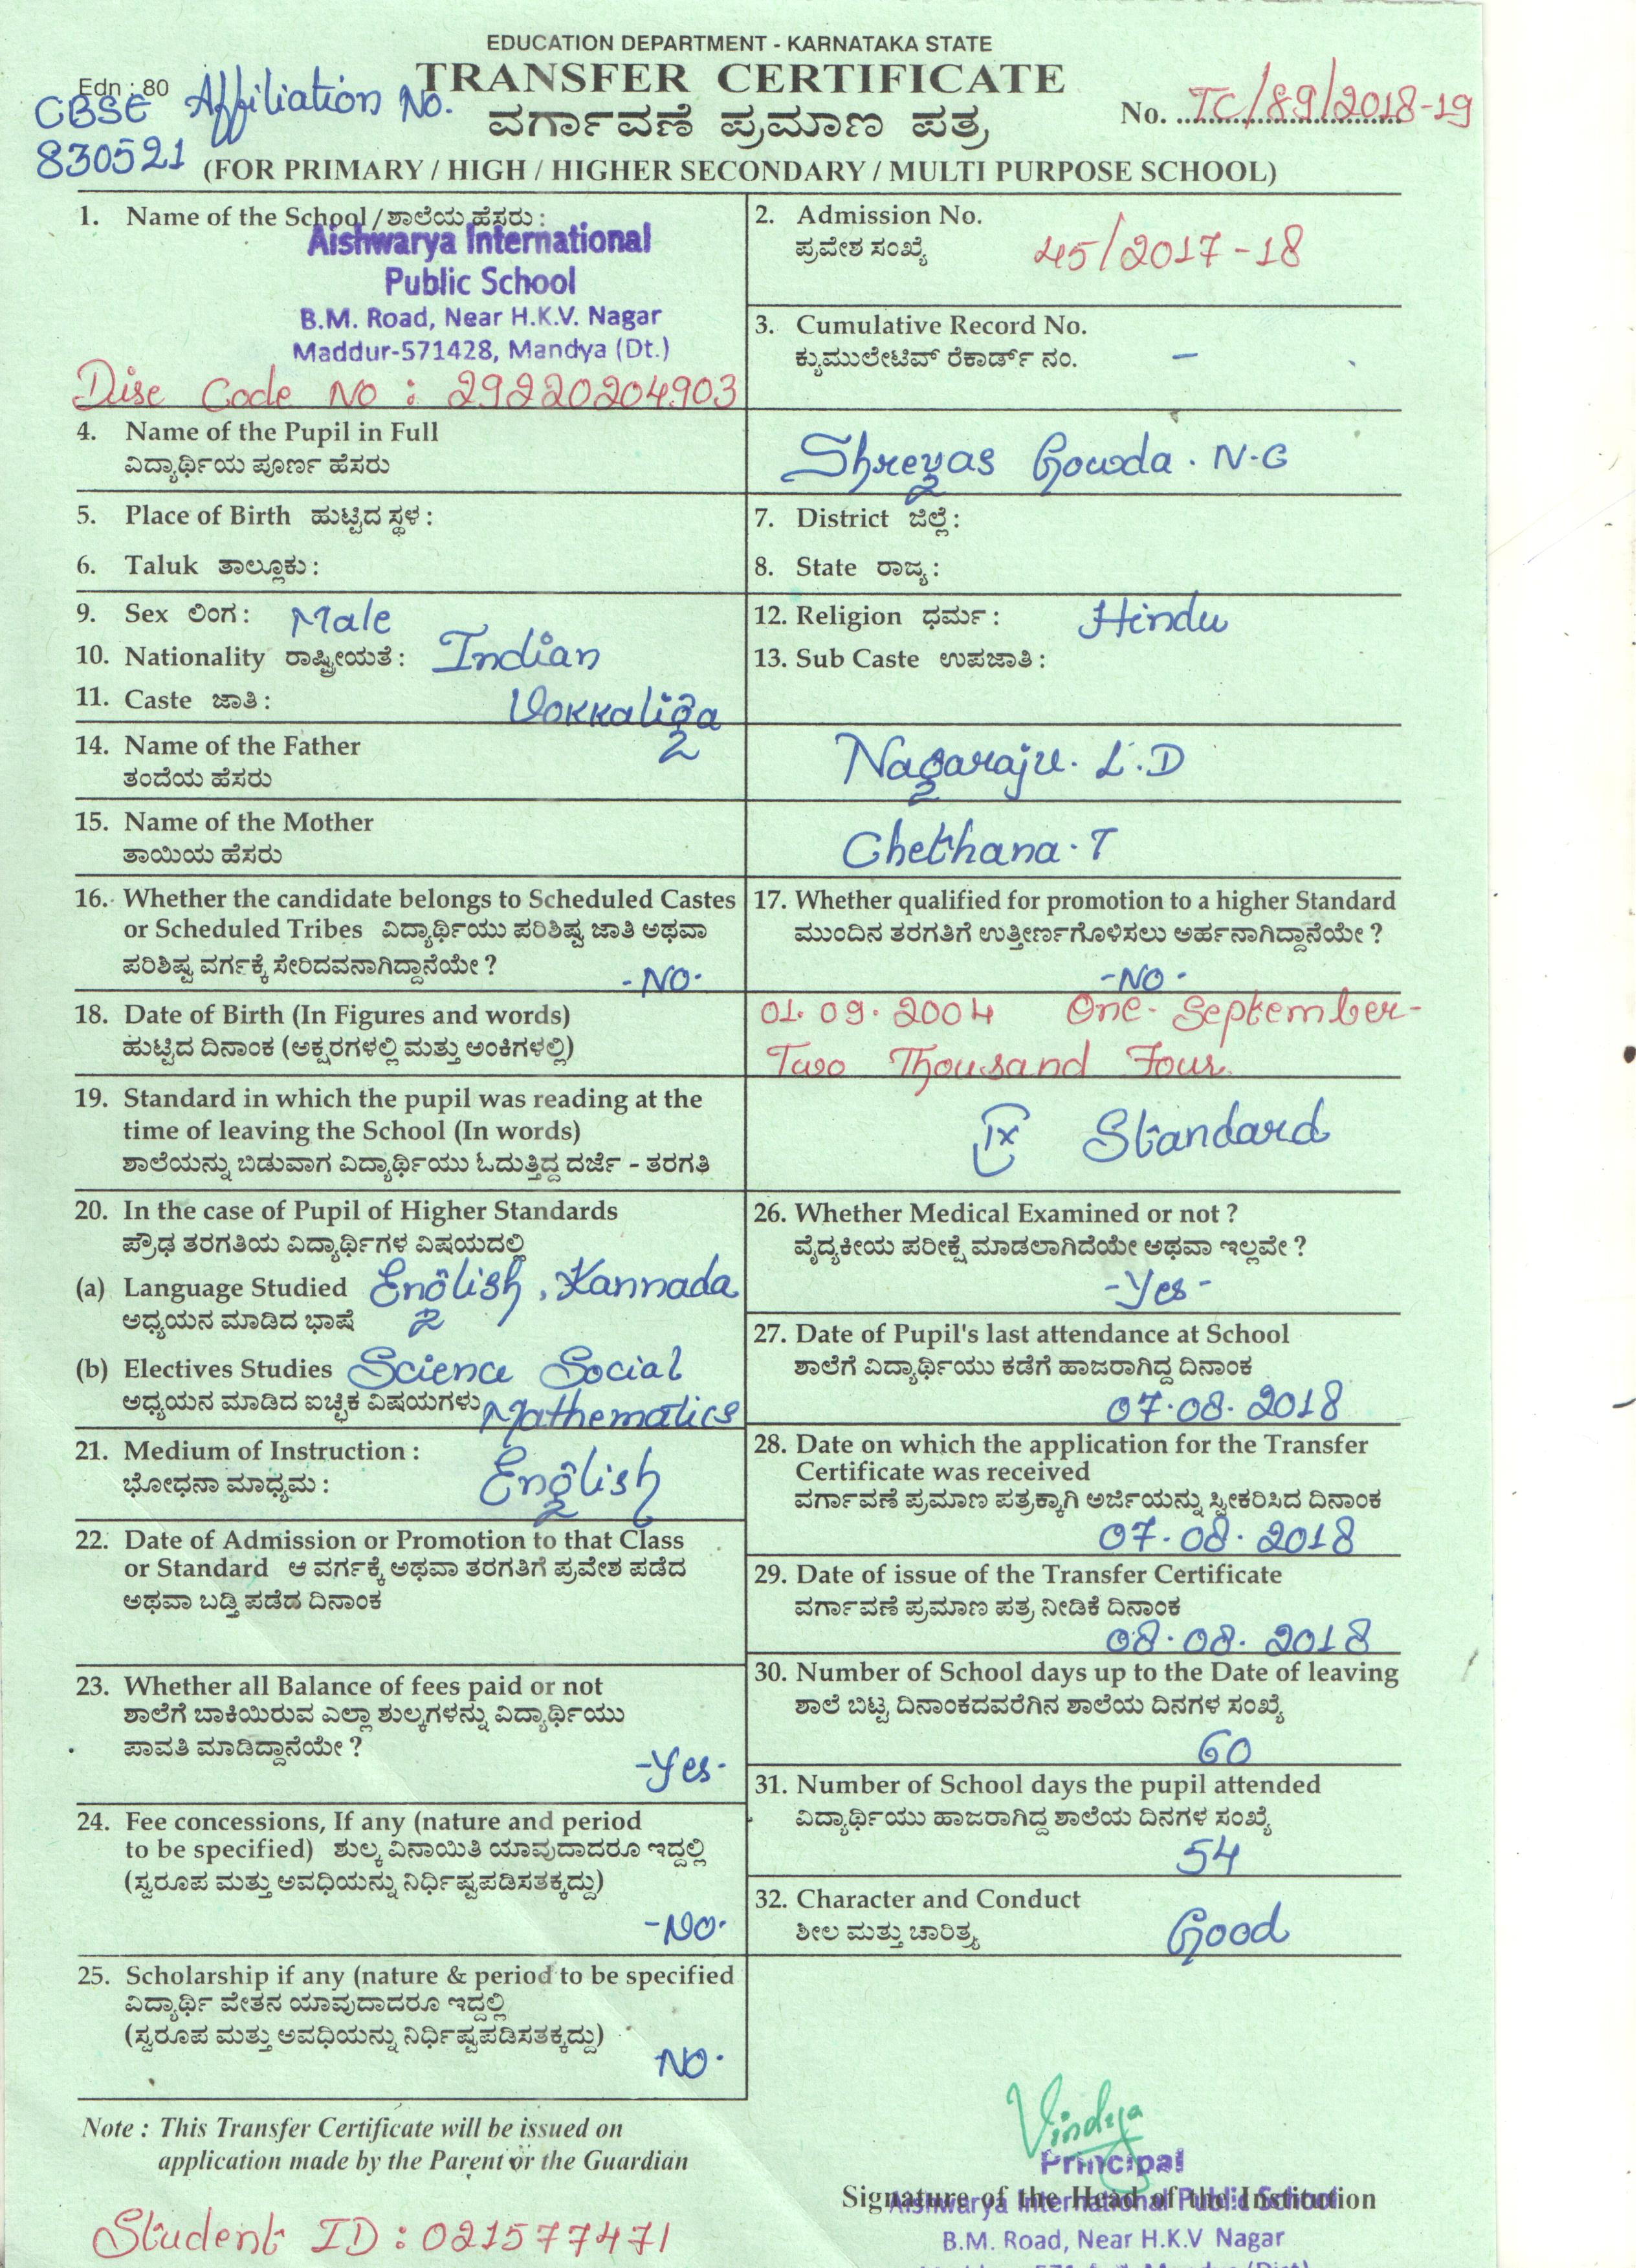 EDUCATION DEPARTMENT - KARNATAKA STATE
Edn : 80
TRANSFER CERTIFICATE
CBSE Affiliation No.
830521
ವರ್ಗಾವಣೆ ಪ್ರಮಾಣ ಪತ್ರ
No. TC/89/2018-19
(FOR PRIMARY / HIGH / HIGHER SECONDARY / MULTI PURPOSE SCHOOL)
1. Name of the School / ಶಾಲೆಯ ಹೆಸರು :
Aishwarya International
Public School
B.M. Road, Near H.K.V. Nagar
Maddur-571428, Mandya (Dt.)
Dise Code No : 29220204903
2. Admission No.
ಪ್ರವೇಶ ಸಂಖ್ಯೆ 45/2017-18
3. Cumulative Record No.
ಕ್ಯುಮುಲೇಟಿವ್ ರೆಕಾರ್ಡ್ ನಂ. –
4. Name of the Pupil in Full
ವಿದ್ಯಾರ್ಥಿಯ ಪೂರ್ಣ ಹೆಸರು
Shreyas Gowda . N-G
5. Place of Birth ಹುಟ್ಟಿದ ಸ್ಥಳ :
6. Taluk ತಾಲ್ಲೂಕು :
7. District ಜಿಲ್ಲೆ :
8. State ರಾಜ್ಯ :
9. Sex ಲಿಂಗ : Male
10. Nationality ರಾಷ್ಟ್ರೀಯತೆ : Indian
11. Caste ಜಾತಿ : Vokkaliga
12. Religion ಧರ್ಮ : Hindu
13. Sub Caste ಉಪಜಾತಿ :
14. Name of the Father
ತಂದೆಯ ಹೆಸರು
Nagaraju. L.D
15. Name of the Mother
ತಾಯಿಯ ಹೆಸರು
Chethana . T
16. Whether the candidate belongs to Scheduled Castes
or Scheduled Tribes ವಿದ್ಯಾರ್ಥಿಯು ಪರಿಶಿಷ್ಟ ಜಾತಿ ಅಥವಾ
ಪರಿಶಿಷ್ಟ ವರ್ಗಕ್ಕೆ ಸೇರಿದವನಾಗಿದ್ದಾನೆಯೇ ?
-NO-
17. Whether qualified for promotion to a higher Standard
ಮುಂದಿನ ತರಗತಿಗೆ ಉತ್ತೀರ್ಣಗೊಳಿಸಲು ಅರ್ಹನಾಗಿದ್ದಾನೆಯೇ ?
-NO-
18. Date of Birth (In Figures and words)
ಹುಟ್ಟಿದ ದಿನಾಂಕ (ಅಕ್ಷರಗಳಲ್ಲಿ ಮತ್ತು ಅಂಕಿಗಳಲ್ಲಿ)
01.09.2004 One- September-
Two Thousand Four.
19. Standard in which the pupil was reading at the
time of leaving the School (In words)
ಶಾಲೆಯನ್ನು ಬಿಡುವಾಗ ವಿದ್ಯಾರ್ಥಿಯು ಓದುತ್ತಿದ್ದ ದರ್ಜೆ - ತರಗತಿ
IX Standard
20. In the case of Pupil of Higher Standards
ಪ್ರೌಢ ತರಗತಿಯ ವಿದ್ಯಾರ್ಥಿಗಳ ವಿಷಯದಲ್ಲಿ
(a) Language Studied English, Kannada
ಅಧ್ಯಯನ ಮಾಡಿದ ಭಾಷೆ
(b) Electives Studies Science Social
ಅಧ್ಯಯನ ಮಾಡಿದ ಐಚ್ಛಿಕ ವಿಷಯಗಳು Mathematics
21. Medium of Instruction :
ಭೋಧನಾ ಮಾಧ್ಯಮ : English
22. Date of Admission or Promotion to that Class
or Standard ಆ ವರ್ಗಕ್ಕೆ ಅಥವಾ ತರಗತಿಗೆ ಪ್ರವೇಶ ಪಡೆದ
ಅಥವಾ ಬಡ್ತಿ ಪಡೆದ ದಿನಾಂಕ
23. Whether all Balance of fees paid or not
ಶಾಲೆಗೆ ಬಾಕಿಯಿರುವ ಎಲ್ಲಾ ಶುಲ್ಕಗಳನ್ನು ವಿದ್ಯಾರ್ಥಿಯು
ಪಾವತಿ ಮಾಡಿದ್ದಾನೆಯೇ ?
-Yes-
24. Fee concessions, If any (nature and period
to be specified) ಶುಲ್ಕ ವಿನಾಯಿತಿ ಯಾವುದಾದರೂ ಇದ್ದಲ್ಲಿ
(ಸ್ವರೂಪ ಮತ್ತು ಅವಧಿಯನ್ನು ನಿರ್ಧಿಷ್ಟಪಡಿಸತಕ್ಕದ್ದು)
-NO-
25. Scholarship if any (nature & period to be specified
ವಿದ್ಯಾರ್ಥಿ ವೇತನ ಯಾವುದಾದರೂ ಇದ್ದಲ್ಲಿ
(ಸ್ವರೂಪ ಮತ್ತು ಅವಧಿಯನ್ನು ನಿರ್ಧಿಷ್ಟಪಡಿಸತಕ್ಕದ್ದು)
NO-
26. Whether Medical Examined or not ?
ವೈದ್ಯಕೀಯ ಪರೀಕ್ಷೆ ಮಾಡಲಾಗಿದೆಯೇ ಅಥವಾ ಇಲ್ಲವೇ ?
-Yes-
27. Date of Pupil's last attendance at School
ಶಾಲೆಗೆ ವಿದ್ಯಾರ್ಥಿಯು ಕಡೆಗೆ ಹಾಜರಾಗಿದ್ದ ದಿನಾಂಕ
07.08.2018
28. Date on which the application for the Transfer
Certificate was received
ವರ್ಗಾವಣೆ ಪ್ರಮಾಣ ಪತ್ರಕ್ಕಾಗಿ ಅರ್ಜಿಯನ್ನು ಸ್ವೀಕರಿಸಿದ ದಿನಾಂಕ
07.08.2018
29. Date of issue of the Transfer Certificate
ವರ್ಗಾವಣೆ ಪ್ರಮಾಣ ಪತ್ರ ನೀಡಿಕೆ ದಿನಾಂಕ
08.08.2018
30. Number of School days up to the Date of leaving
ಶಾಲೆ ಬಿಟ್ಟ ದಿನಾಂಕದವರೆಗಿನ ಶಾಲೆಯ ದಿನಗಳ ಸಂಖ್ಯೆ
60
31. Number of School days the pupil attended
ವಿದ್ಯಾರ್ಥಿಯು ಹಾಜರಾಗಿದ್ದ ಶಾಲೆಯ ದಿನಗಳ ಸಂಖ್ಯೆ
54
32. Character and Conduct
ಶೀಲ ಮತ್ತು ಚಾರಿತ್ರ್ಯ Good
Note : This Transfer Certificate will be issued on
application made by the Parent or the Guardian
Student ID : 021577471
Vindya
Principal
Signature of the Head of the Institution
Aishwarya International Public School
B.M. Road, Near H.K.V Nagar